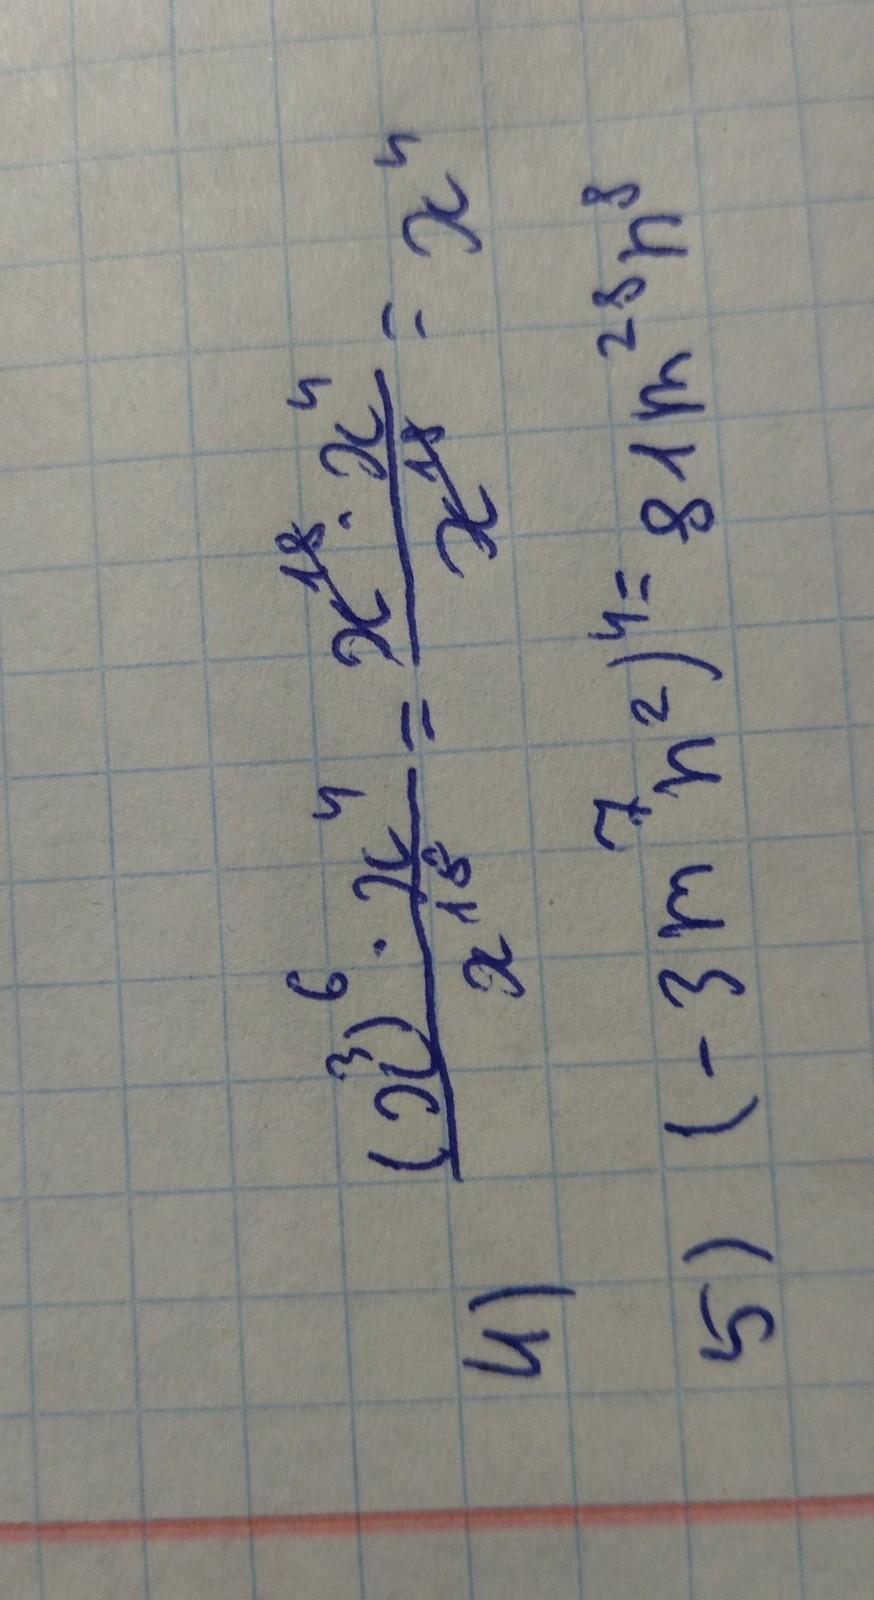 4) (x³)⁶ · x⁴ / x¹⁸ = x¹⁸ · x⁴ / x¹⁸ = x⁴
5) (-3m⁷n²)⁴ = 81m²⁸n⁸